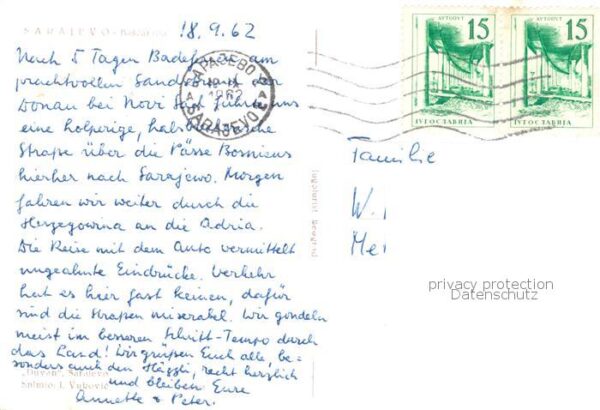 SARAJEVO
18.9.62
Nach 5 Tagen Badeferien am
prachtvollen Sandstrand der
Donau bei Novi Sad führte uns
eine holperige, halsbrecherische
Straße über die Pässe Bosniens
hierher nach Sarajewo. Morgen
fahren wir weiter durch die
Herzegowina an die Adria.
Die Reise mit dem Auto vermittelt
ungeahnte Eindrücke. Verkehr
hat es hier fast keinen, dafür
sind die Straßen miserabel. Wir gondeln
meist im besseren Schritt-Tempo durch
das Land! Wir grüßen Euch alle, be-
sonders auch den Häggli, recht herzlich
und bleiben Eure
Annette & Peter.
Sarajevo
Snimio: I. Vuković
Jugoturist Beograd
САРАЈЕВО
1962
SARAJEVO
15
JУГОСЛАВИЈА
15
JУГОСЛАВИЈА
Familie
W.
Me
privacy protection
Datenschutz